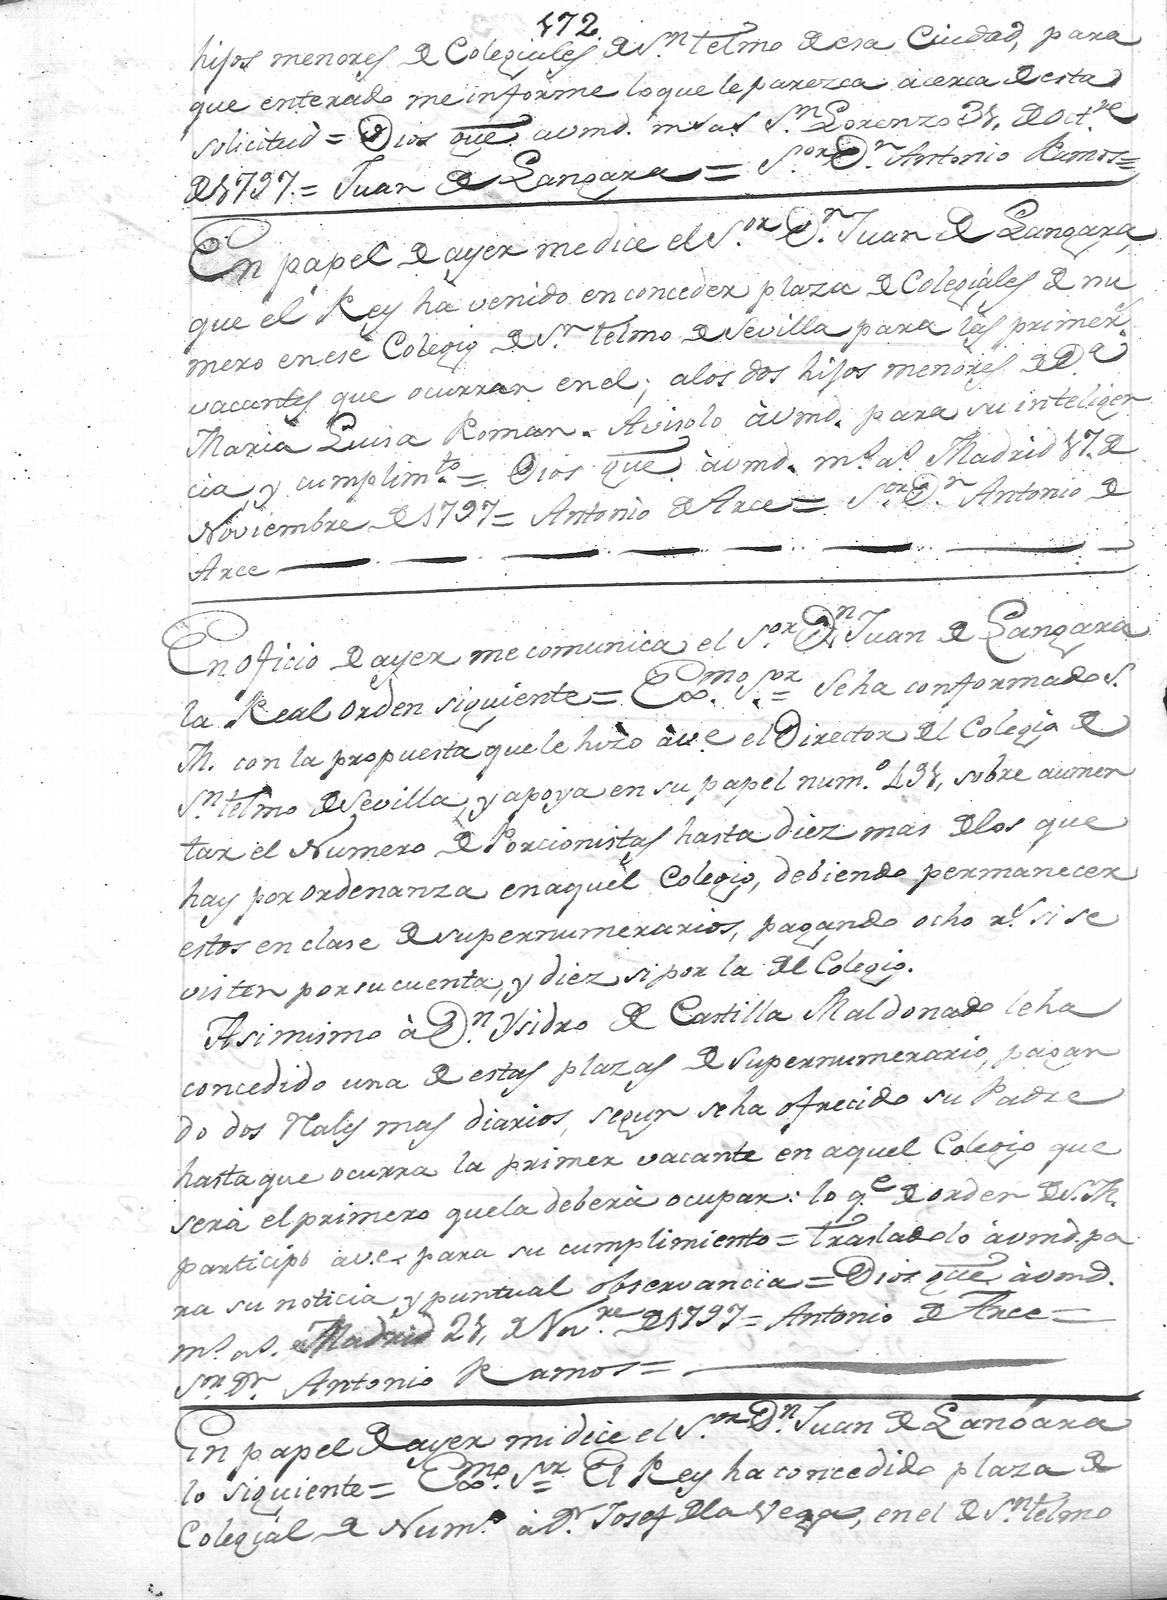 172
hijos menores de Colegiales de Sn telmo de esa Ciudad, para
que enterado me informe lo que le parezca àcerca de esta
solicitud = Dios gue. avmd. ms as Sn. Lorenzo 31, de Octre
de 1797 = Juan de Langara = Sor Dn. Antonio Ramos =
En papel de ayer me dice el Sor Dn. Juan de Langara,
que el Rey ha venido en conceder plaza de Colegiales de nu
mero en ese Colegio de Sn. telmo de Sevilla para las primers.
vacantes que ocurran en el; alos dos hijos menores de Da
Maria Luisa Roman. Avisolo àvmd. para su inteligen
cia y cumplimto. = Dios gue àvmd. ms. as. Madrid 17. de
Noviembre de 1797 = Antonio de Arce = Sor Dn Antonio de
Arce
En oficio de ayer me comunica el Sor Dn Juan de Langara
la Real orden siguiente = Exmo. Sor = Seha conformado S.
M. con la propuesta que le hizo àve el Director del Colegio de
Sn telmo de Sevilla, y apoya en su papel num.o 431, sobre aumen
tar el Numero de Porcionistas hasta diez mas delos que
hay por ordenanza en aquel Colegio, debiendo permanecer
estos en clase de supernumerarios, pagando ocho rs. si se
visten por su cuenta, y diez si por la del Colegio.
Asimismo à Dn. Ysidro de Castilla Maldonado leha
concedido una de estas plazas de supernumerario, pagan
do dos rales mas diarios, segun seha ofrecido su Padre
hasta que ocurra la primer vacante en aquel Colegio que
serà el primero quela deberà ocupar: lo qe de orden de S. M.
participo ave. para su cumplimiento = Trasladolo àvmd. pa
ra su noticia y puntual observancia = Dios gue àvmd.
ms. as. Madrid 21, de Novre de 1797 = Antonio de Arce =
Sor Dn. Antonio Ramos =
En papel de ayer mi dice el Sor Dn. Juan de Langara
lo siguiente = Exmo. Sor = El Rey ha concedido plaza de
Colegial de Num.o à Dn. Josef dela Vega, en el de Sn telmo